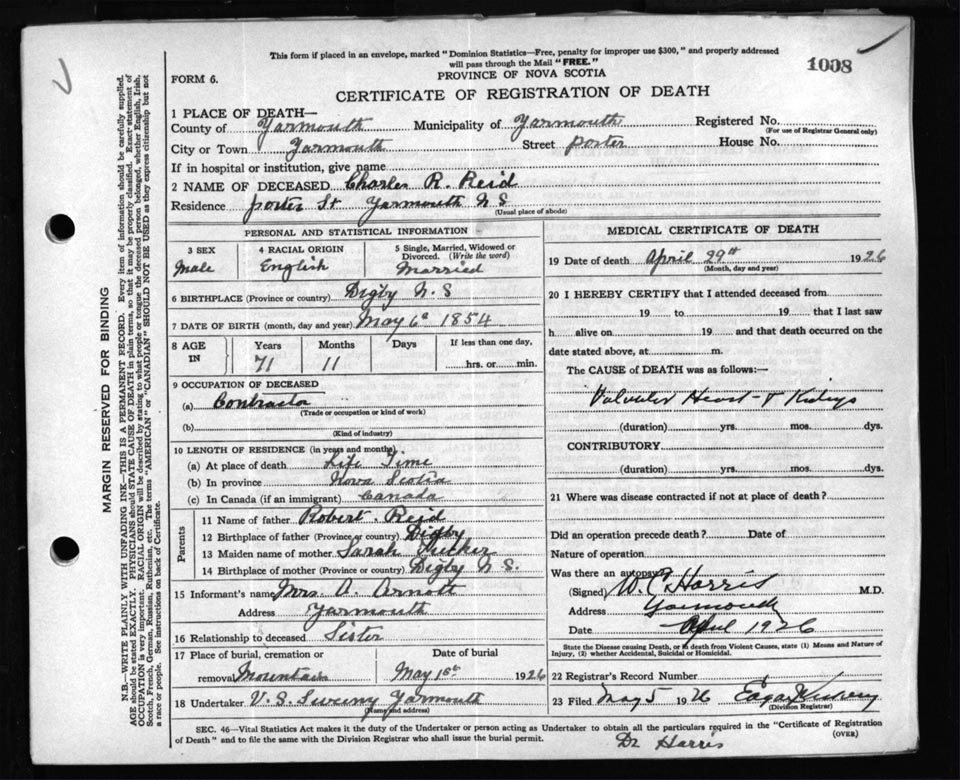 This form if placed in an envelope, marked "Dominion Statistics—Free, penalty for improper use $300," and properly addressed
will pass through the Mail "FREE."
1008
FORM 6.
PROVINCE OF NOVA SCOTIA
CERTIFICATE OF REGISTRATION OF DEATH
1 PLACE OF DEATH—
County of Yarmouth Municipality of Yarmouth Registered No.
(For use of Registrar General only)
City or Town Yarmouth Street porter House No.
If in hospital or institution, give name
2 NAME OF DECEASED Charles R. Reid
Residence porter St Yarmouth N S
(Usual place of abode)
PERSONAL AND STATISTICAL INFORMATION
3 SEX 4 RACIAL ORIGIN 5 Single, Married, Widowed or
Divorced. (Write the word)
Male English Married
6 BIRTHPLACE (Province or country) Digby N. S
7 DATE OF BIRTH (month, day and year) May 6th 1854
8 AGE IN Years Months Days If less than one day,
71 11 hrs. or min.
9 OCCUPATION OF DECEASED
(a) Contractor
(Trade or occupation or kind of work)
(b)
(Kind of industry)
10 LENGTH OF RESIDENCE (in years and months)
(a) At place of death Life Time
(b) In province Nova Scotia
(c) In Canada (if an immigrant) Canada
Parents
11 Name of father Robert. Reid
12 Birthplace of father (Province or country) Digby
13 Maiden name of mother Sarah
14 Birthplace of mother (Province or country) Digby N S.
15 Informant's name Mrs A. Arnott
Address Yarmouth
16 Relationship to deceased Sister
17 Place of burial, cremation or Date of burial
removal Mountain May 1st 1926
18 Undertaker V. S. Sweeny Yarmouth
(Name and address)
MEDICAL CERTIFICATE OF DEATH
19 Date of death April 29th 1926
(Month, day and year)
20 I HEREBY CERTIFY that I attended deceased from
19 to 19 that I last saw
h alive on 19 and that death occurred on the
date stated above, at m.
The CAUSE of DEATH was as follows:—
Valvular Heart + Kidneys
(duration) yrs. mos. dys.
CONTRIBUTORY
(duration) yrs. mos. dys.
21 Where was disease contracted if not at place of death?
Did an operation precede death? Date of
Nature of operation
Was there an autopsy?
(Signed) W. C. Harris M.D.
Address Yarmouth
Date April 1926
State the Disease causing Death, or in death from Violent Causes, state (1) Means and Nature of
Injury, (2) whether Accidental, Suicidal or Homicidal.
22 Registrar's Record Number
23 Filed May 5 1926 Edgar
(Division Registrar)
SEC. 46—Vital Statistics Act makes it the duty of the Undertaker or person acting as Undertaker to obtain all the particulars required in the "Certificate of Registration
of Death" and to file the same with the Division Registrar who shall issue the burial permit.
(OVER)
Dr Harris
MARGIN RESERVED FOR BINDING
N.B.—WRITE PLAINLY WITH UNFADING INK—THIS IS A PERMANENT RECORD. Every item of information should be carefully supplied.
AGE should be stated EXACTLY. PHYSICIANS should STATE CAUSE OF DEATH in plain terms, so that it may be properly classified. Exact statement of
OCCUPATION is very important. RACIAL ORIGIN will be described by stating to what people or tongue the deceased person belonged, whether English, Irish,
Scotch, French, German, Russian, Ruthenian, etc. The terms "AMERICAN" or "CANADIAN" SHOULD NOT BE USED as they express citizenship but not
a race or people. See instructions on back of Certificate.